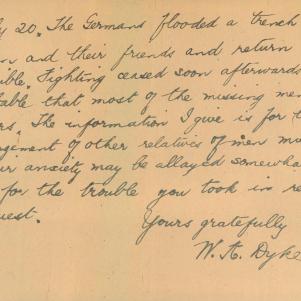 ly 20. The Germans flooded a trench
n and their friends and return
ible. Fighting ceased soon afterwards
bable that most of the missing men
rs. The information I give is for t
agement of other relatives of men miss
eir anxiety may be allayed somewha
for the trouble you took in re
uest.
Yours gratefully
W. A. Dyke